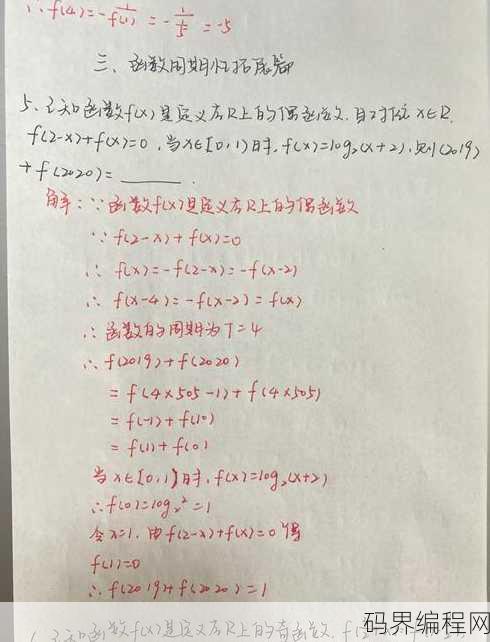 ∴ f(4)=-1/f(1) = -1/(1/5) = -5
三、函数周期性拓展篇
5、已知函数f(x)是定义在R上的偶函数.且对任x∈R.
f(2-x)+f(x)=0，当x∈[0,1)时，f(x)=log₂(x+2)，则f(2019)
+f(2020)=______.
解：∵函数f(x)是定义在R上的偶函数
∵ f(2-x)+f(x)=0
∴ f(x)=-f(2-x)=-f(x-2)
∴ f(x-4)=-f(x-2)=f(x)
∴函数的周期为T=4
∴ f(2019)+f(2020)
=f(4×505-1)+f(4×505)
=f(-1)+f(0)
=f(1)+f(0)
当x∈[0,1)时，f(x)=log₂(x+2)
∴f(0)=log₂2=1
令x=1，由f(2-x)+f(x)=0得
f(1)=0
∴ f(2019)+f(2020)=1
已知函数f(x)是定义在R上的奇函数.
码界编程网